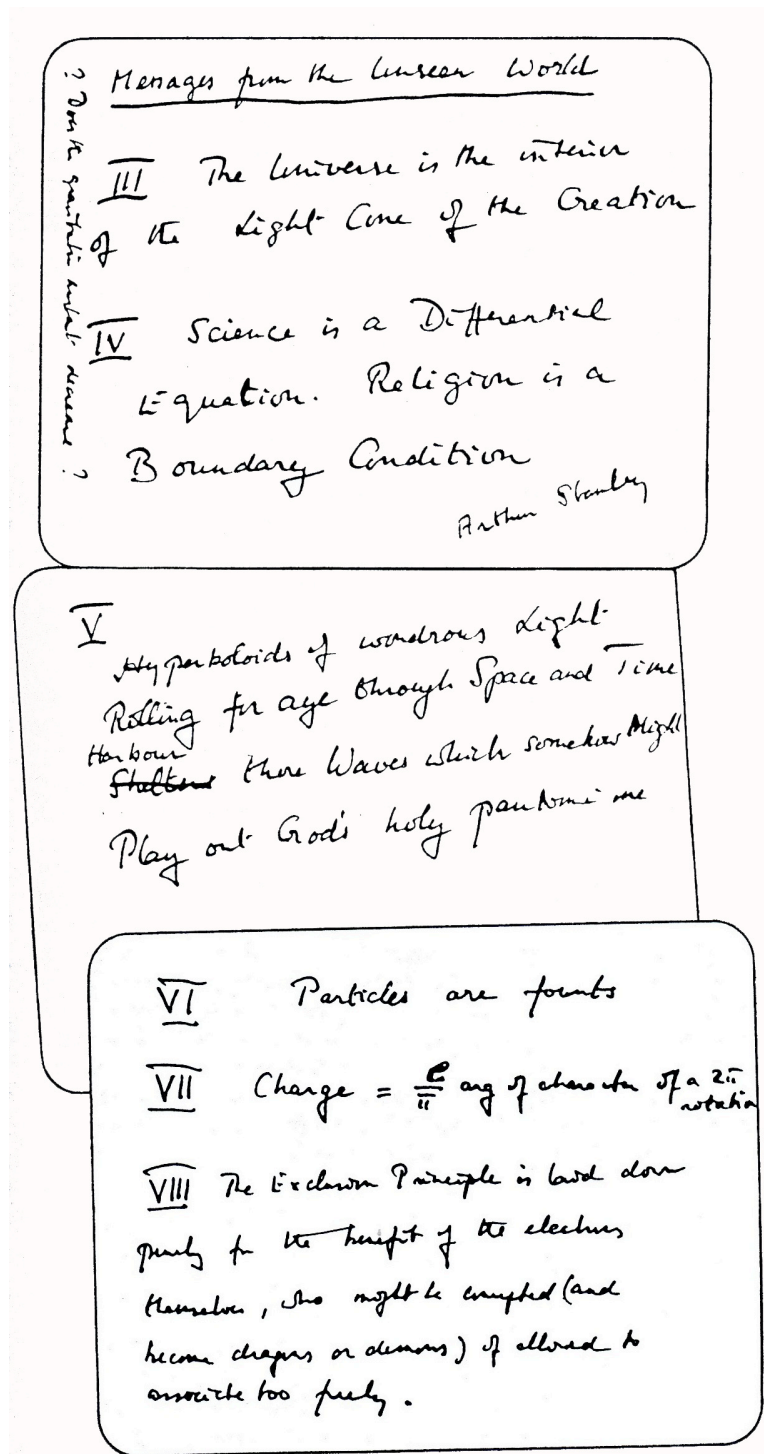 Messages from the Unseen World
? Does the gravitation constant decrease ?
III The Universe is the interior
of the Light Cone of the Creation
IV Science is a Differential
Equation. Religion is a
Boundary Condition
Arthur Stanley
V
Hyperboloids of wondrous Light
Rolling for aye through Space and Time
Harbour
Shelters those Waves which somehow Might
Play out God's holy pantomime
VI Particles are founts
VII Charge = e/π arg of character of a 2π
rotation
VIII The Exclusion Principle is laid down
purely for the benefit of the electrons
themselves, who might be corrupted (and
become dragons or demons) if allowed to
associate too freely.